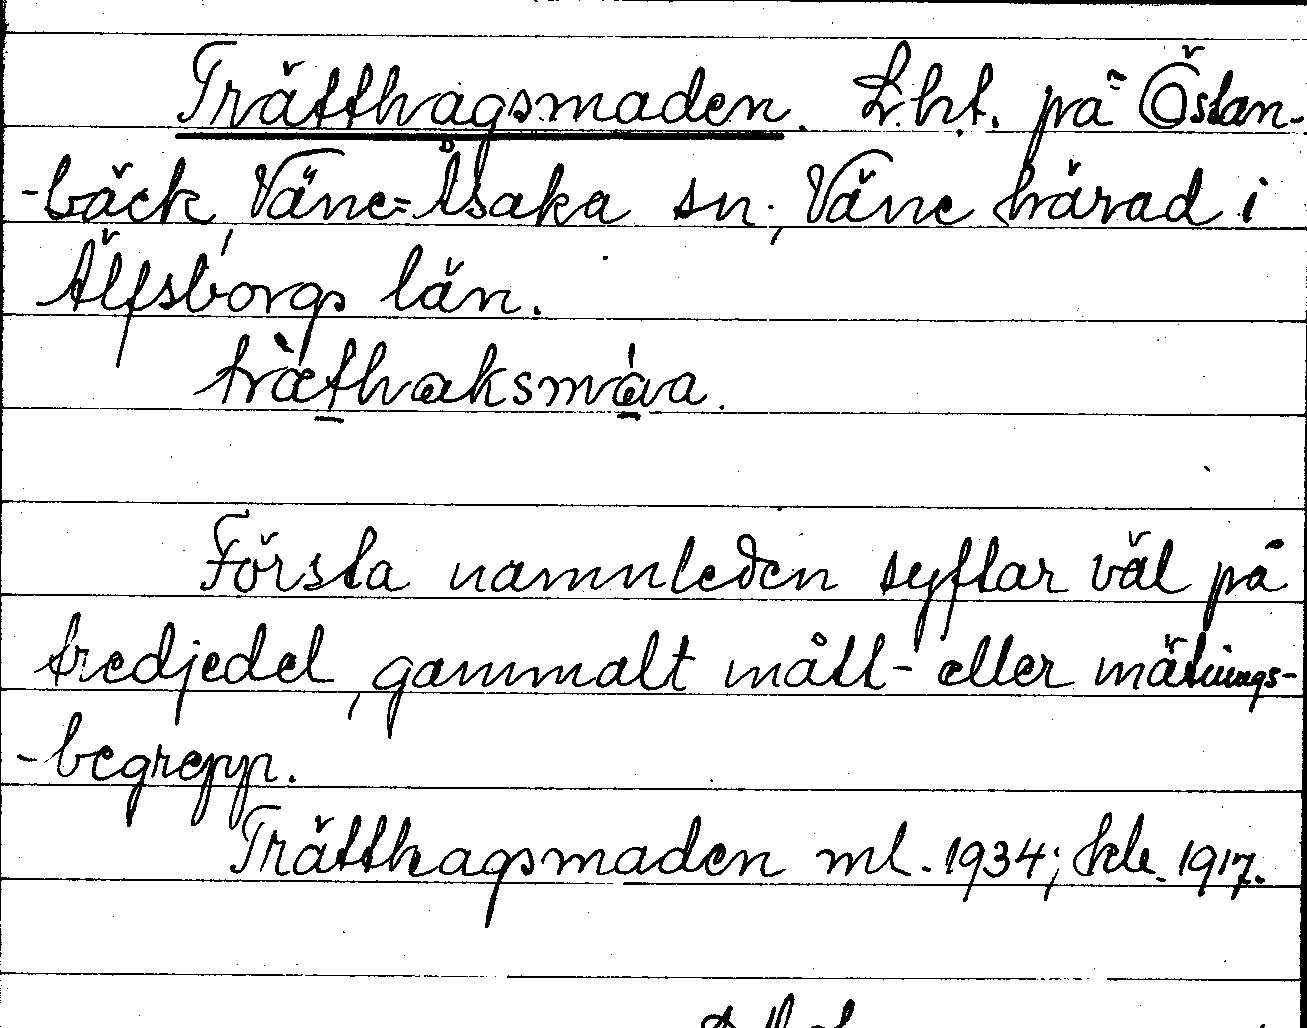 Trätthagsmaden. L.ht. på Östan-
-bäck, Väne=Åsaka sn., Väne härad i
Älfsborgs län.
træthaksmáa.
Första namnleden syftar väl på
tredjedel, gammalt mått- eller mätnings-
-begrepp.
Trätthagsmaden ml. 1934; skh. 1917.